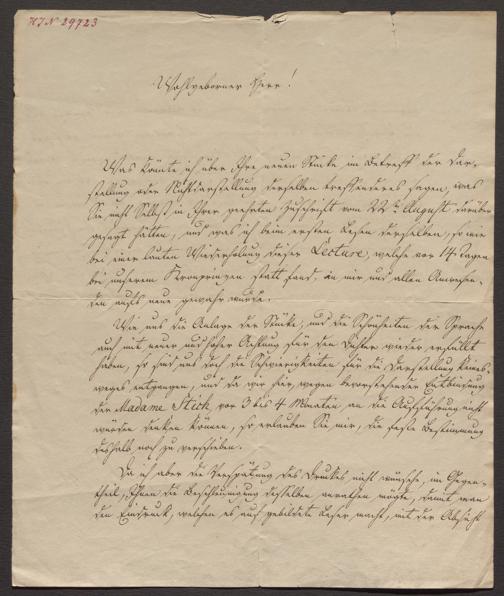 HIN 29723
Wohlgeborner Herr!
Was könnte ich über Ihre neuen Stücke im Betreff der Dar-
stellung oder Nichtdarstellung derselben treffenderes sagen, was
Sie nicht Selbst in Ihrer geehrten Zuschrift vom 22ten August darüber
gesagt hätten, und was ich beim ersten Lesen derselben, so wie
bei einer lauten Wiederholung dieser Lecture, welche vor 14 Tagen
bei unserem Kronprinzen statt fand, an mir und allen Anwesen-
den aufs neue gewahr wurde.
Wie uns die Anlage der Stücke, und die Schönheiten der Sprache
auch mit neuer und hoher Achtung für den Dichter wieder erfüllt
haben, so sind uns doch die Schwierigkeiten für die Darstellung keines-
weges entgangen, und da wir hier wegen bevorstehender Entbindung
der Madame Stich vor 3 bis 4 Monaten an die Aufführung nicht
würden denken können, so erlauben Sie mir, die feste Bestimmung
deshalb noch zu verschieben.
Da ich aber die Verspätung des Druckes nicht wünsche, im Gegen-
theil, Ihnen die Beschleunigung desselben anrathen mögte, damit man
den Eindruck, welchen es auf gebildete Leser macht, mit der Absicht